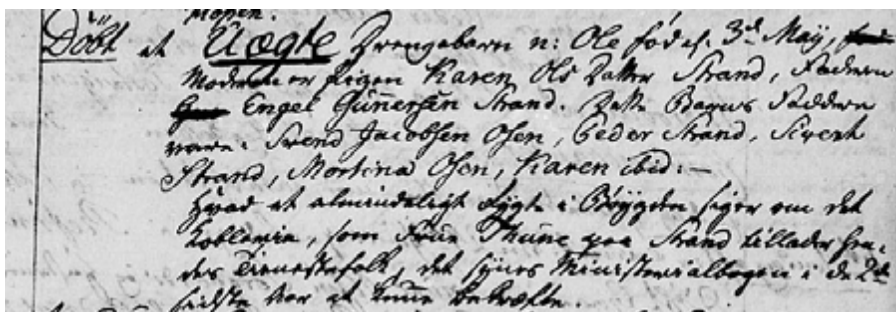 Mopen.
Döbt et Uægte Drengebarn n: Ole föd d. 3d May,
Moderen er Pigen Karen Ols Datter Strand, Faderen
Engel Gunersen Strand. Dette Barns Faddere
vare: Svend Jacobsen Osen, Peder Strand, Sivert
Strand, Mortina Osen, Karen ibid: —
Hvad et almindeligt Rygte i Böygden siger om det
Koblerie, som Frue Thune paa Strand tillader hen-
des Tienestefolk, det synes Ministerialbogen i de 2de
sidste Aar at kunne bekræfte.